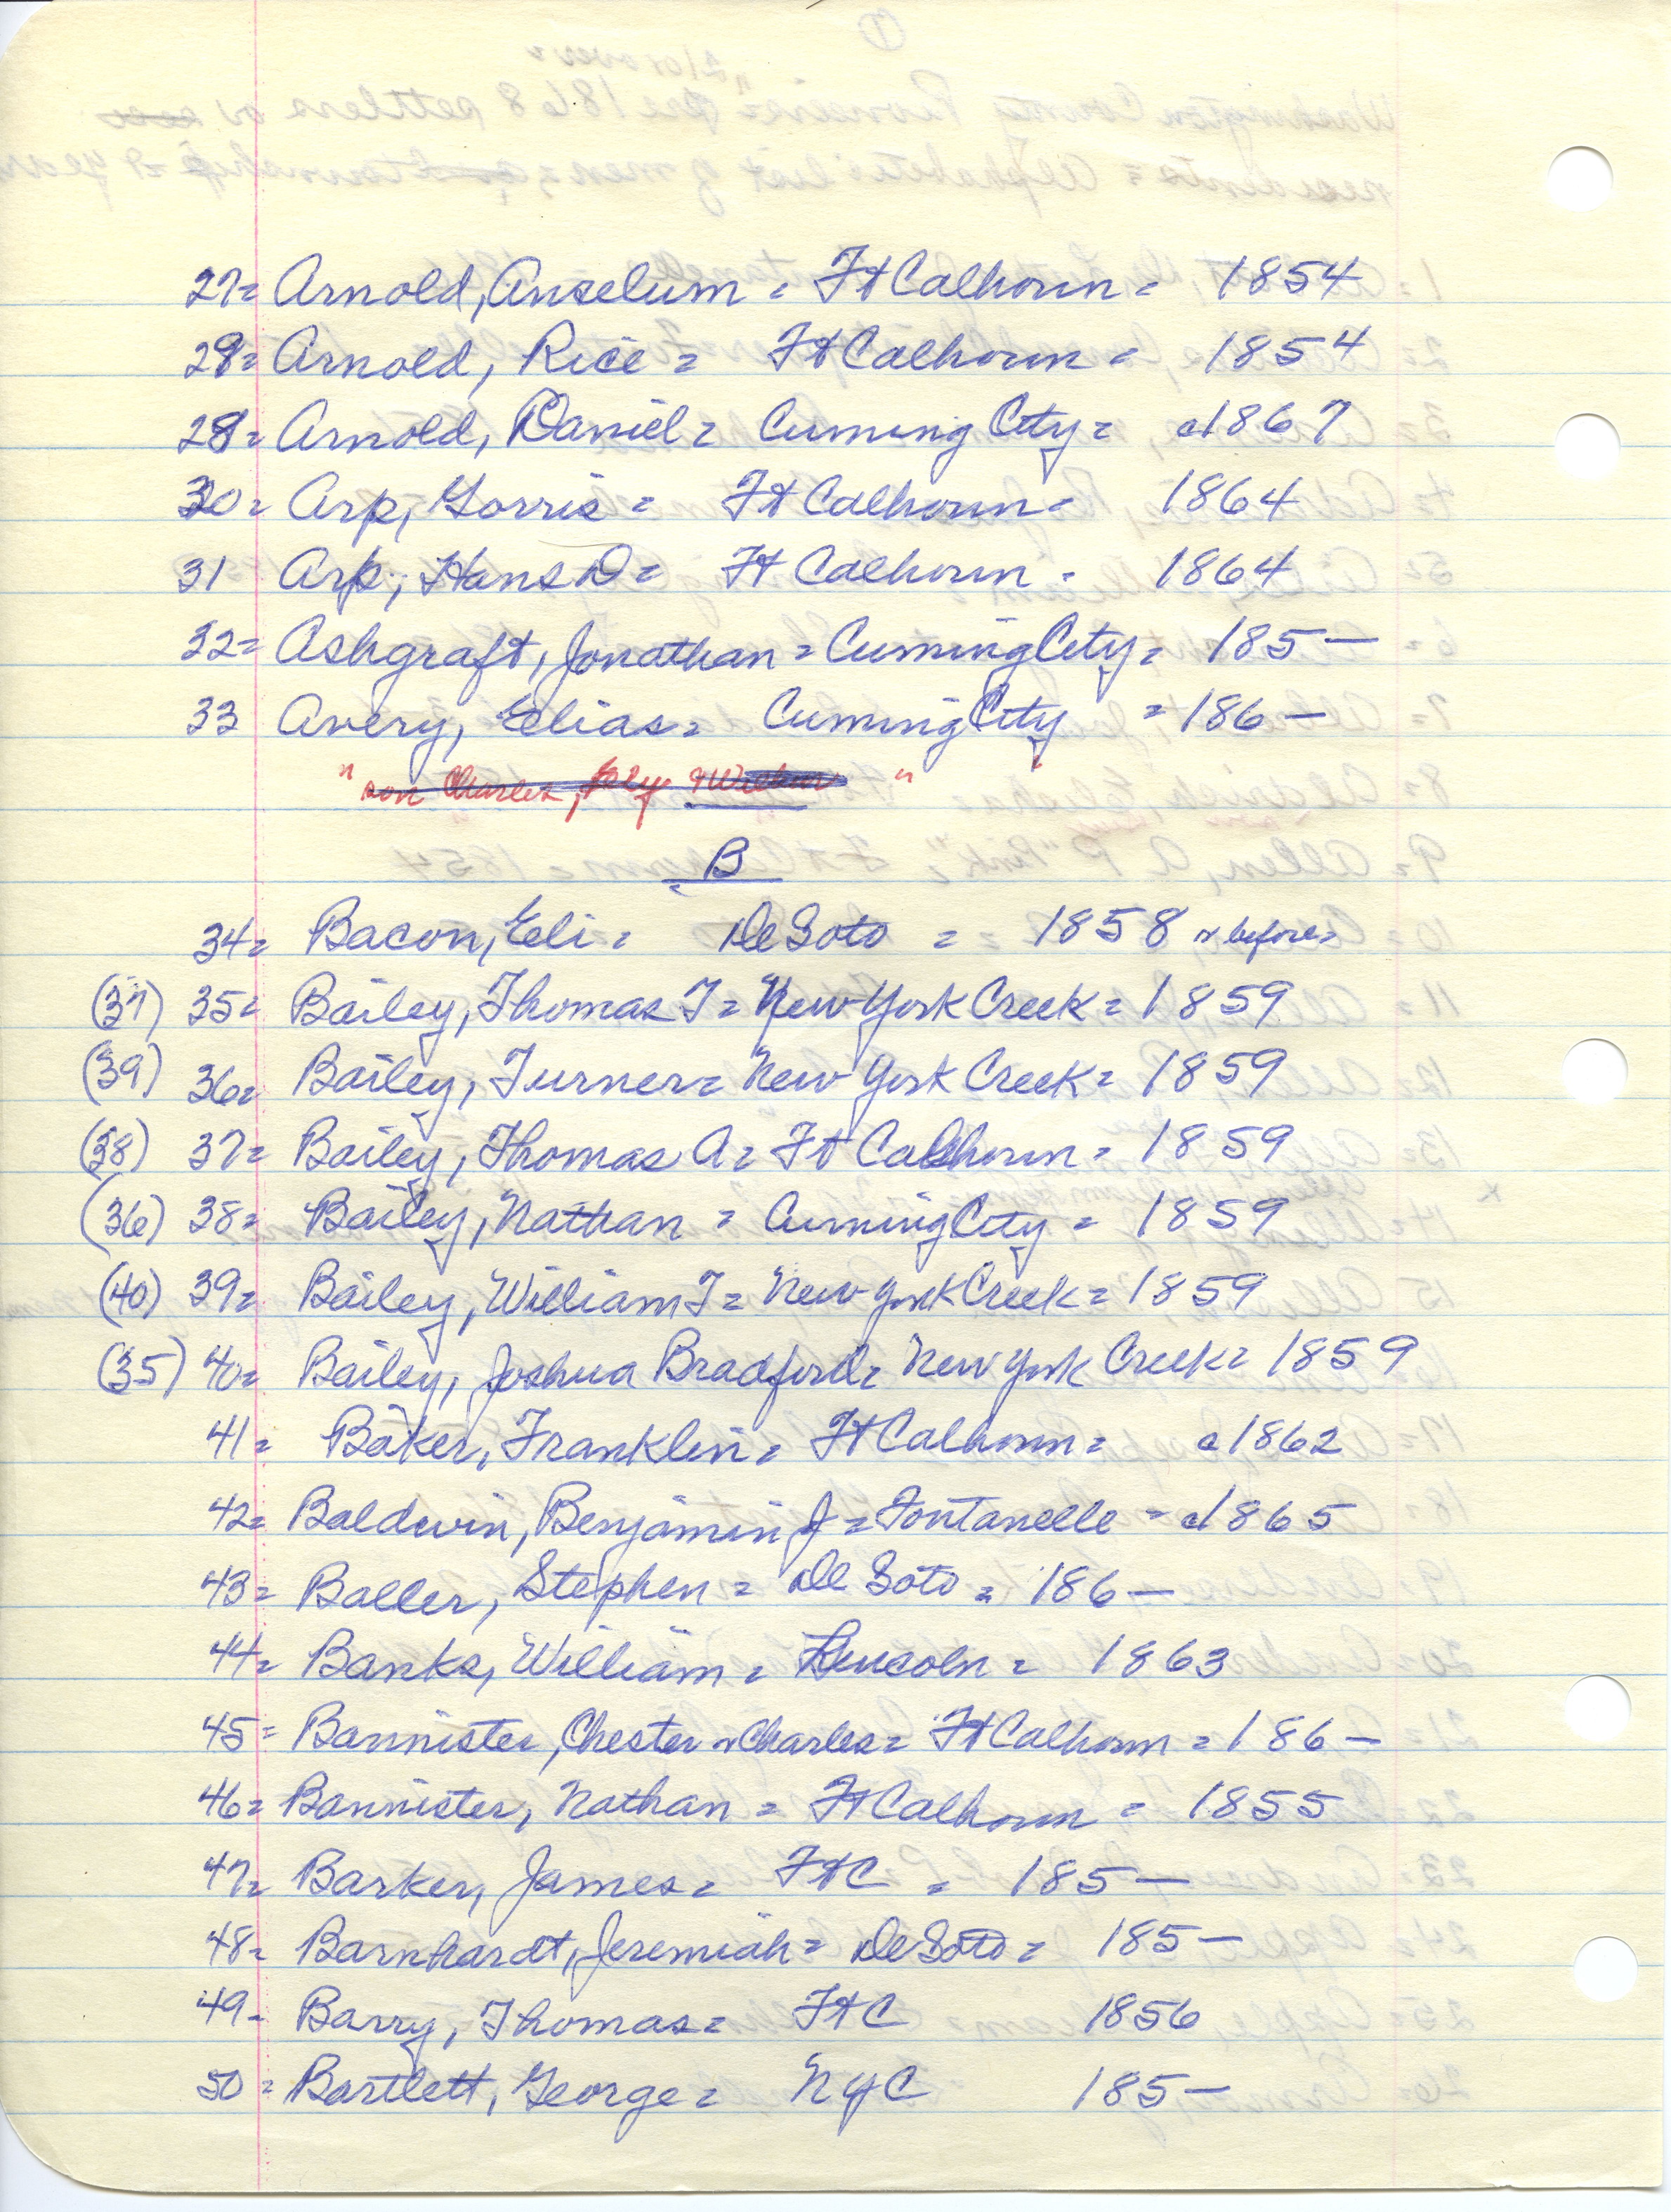 27= Arnold, Anselum = Ft Calhoun = 1854
29= Arnold, Rice = Ft Calhoun = 1854
28= Arnold, Daniel = Cuming City = c1867
30= Arp, Gorris = Ft Calhoun = 1864
31 Arp, Hans D = Ft Calhoun = 1864
32= Ashgraft, Jonathan = Cuming City = 185—
33 Avery, Elias = Cuming City = 186—
" son Charles, & William "
B
34= Bacon, Eli = DeSoto = 1858 or before=
(37) 35= Bailey, Thomas T = New York Creek = 1859
(39) 36= Bailey, Turner = New York Creek = 1859
(38) 37= Bailey, Thomas A = Ft Calhoun = 1859
(36) 38= Bailey, Nathan = Cuming City = 1859
(40) 39= Bailey, William T = New York Creek = 1859
(35) 40= Bailey, Joshua Bradford = New York Creek = 1859
41= Baker, Franklin = Ft Calhoun = c1862
42= Baldwin, Benjamin J = Fontanelle = c1865
43= Baller, Stephen = De Soto = 186—
44= Banks, William = Lincoln = 1863
45= Bannister, Chester or Charles = Ft Calhoun = 186—
46= Bannister, Nathan = Ft Calhoun = 1855
47= Barker, James = FtC = 185—
48= Barnhardt, Jeremiah = DeSoto = 185—
49- Barry, Thomas = FtC 1856
50= Bartlett, George = NYC 185—